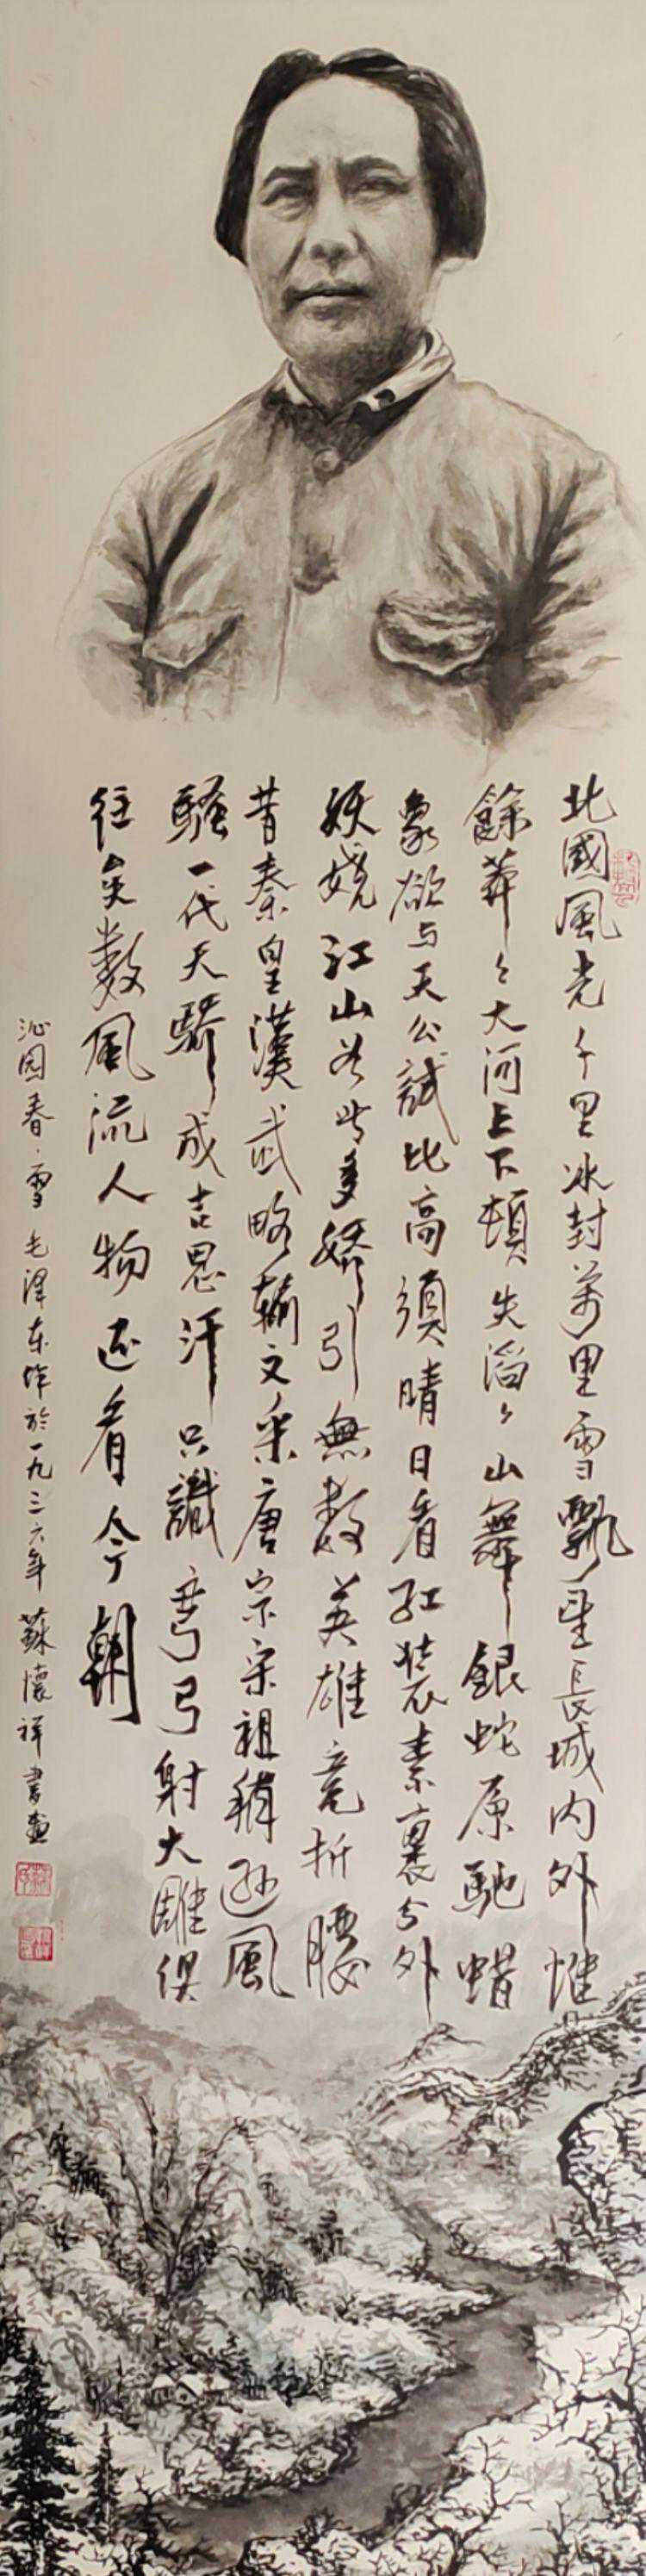 北國風光千里冰封萬里雪飄望長城内外惟
餘莽々大河上下頓失滔々山舞銀蛇原馳蜡
象欲与天公試比高須晴日看红装素裹分外
妖嬈江山如此多嬌引無数英雄竞折腰
昔秦皇漢武略輸文采唐宗宋祖稍逊風
騷一代天驕成吉思汗只識弯弓射大雕俱
往矣數風流人物还看今朝
沁园春·雪 毛泽东作於一九三六年 蘇懷祥書畫